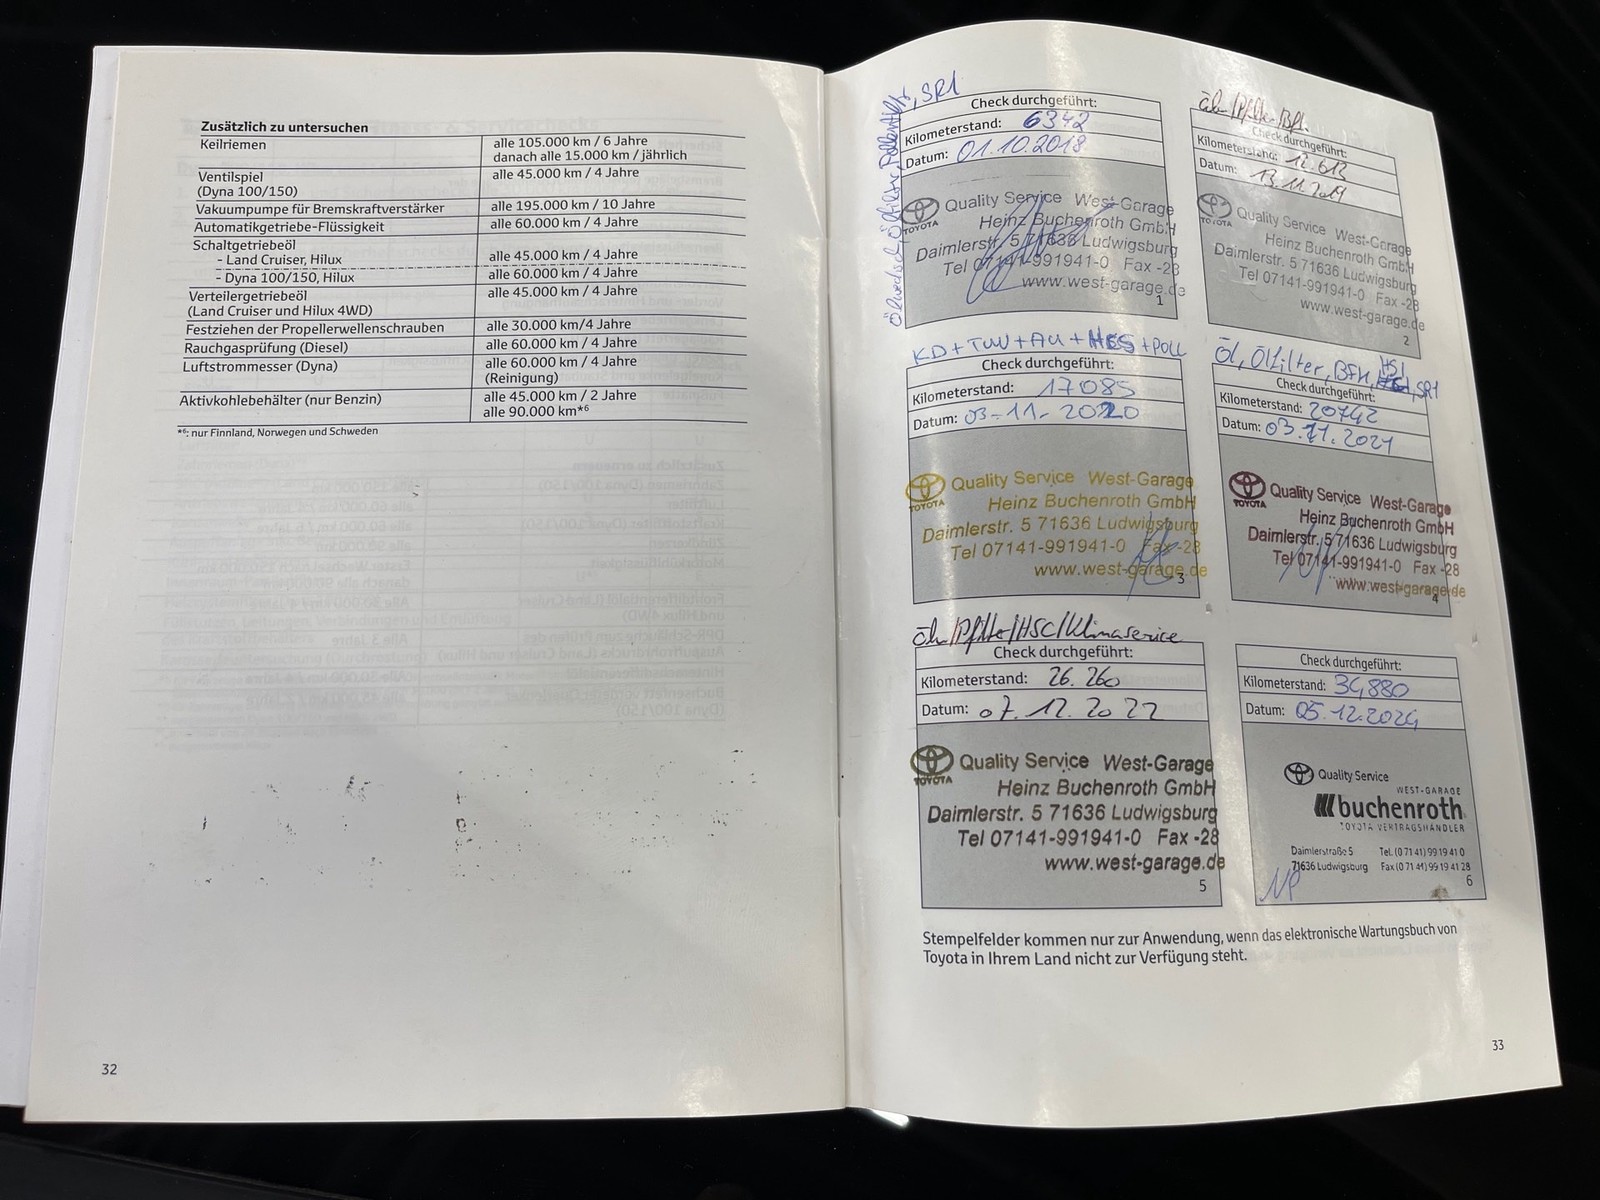 Zusätzlich zu untersuchen
Keilriemen alle 105.000 km / 6 Jahre
danach alle 15.000 km / jährlich
Ventilspiel alle 45.000 km / 4 Jahre
(Dyna 100/150)
Vakuumpumpe für Bremskraftverstärker alle 195.000 km / 10 Jahre
Automatikgetriebe-Flüssigkeit alle 60.000 km / 4 Jahre
Schaltgetriebeöl
- Land Cruiser, Hilux alle 45.000 km / 4 Jahre
- Dyna 100/150, Hilux alle 60.000 km / 4 Jahre
Verteilergetriebeöl alle 45.000 km / 4 Jahre
(Land Cruiser und Hilux 4WD)
Festziehen der Propellerwellenschrauben alle 30.000 km/4 Jahre
Rauchgasprüfung (Diesel) alle 60.000 km / 4 Jahre
Luftstrommesser (Dyna) alle 60.000 km / 4 Jahre
(Reinigung)
Aktivkohlebehälter (nur Benzin) alle 45.000 km / 2 Jahre
alle 90.000 km*6
*6: nur Finnland, Norwegen und Schweden
32
Ölwechsel, Ölfiltr, Pollenfiltr, SR1
Check durchgeführt:
Kilometerstand: 6342
Datum: 01.10.2018
TOYOTA
Quality Service West-Garage
Heinz Buchenroth GmbH
Daimlerstr. 5 71636 Ludwigsburg
Tel 07141-991941-0 Fax -28
www.west-garage.de
1
Check durchgeführt:
Kilometerstand: 12.613
Datum: 13.11.2019
TOYOTA
Quality Service West-Garage
Heinz Buchenroth GmbH
Daimlerstr. 5 71636 Ludwigsburg
Tel 07141-991941-0 Fax -28
www.west-garage.de
2
KD + TÜV + AU + HES + POLL
Check durchgeführt:
Kilometerstand: 17085
Datum: 03-11-2020
TOYOTA
Quality Service West-Garage
Heinz Buchenroth GmbH
Daimlerstr. 5 71636 Ludwigsburg
Tel 07141-991941-0 Fax -28
www.west-garage.de
3
Öl, Ölfilter, BFK, HS1, SR1
Check durchgeführt:
Kilometerstand: 20742
Datum: 03.11.2021
TOYOTA
Quality Service West-Garage
Heinz Buchenroth GmbH
Daimlerstr. 5 71636 Ludwigsburg
Tel 07141-991941-0 Fax -28
www.west-garage.de
4
/HSC/Klimaservice
Check durchgeführt:
Kilometerstand: 26.260
Datum: 07.12.2022
TOYOTA
Quality Service West-Garage
Heinz Buchenroth GmbH
Daimlerstr. 5 71636 Ludwigsburg
Tel 07141-991941-0 Fax -28
www.west-garage.de
5
Check durchgeführt:
Kilometerstand: 34,880
Datum: 05.12.2024
Quality Service
WEST-GARAGE
buchenroth
TOYOTA VERTRAGSHÄNDLER
Daimlerstraße 5 Tel. (0 71 41) 99 19 41 0
71636 Ludwigsburg Fax (0 71 41) 99 19 41 28
6
Stempelfelder kommen nur zur Anwendung, wenn das elektronische Wartungsbuch von
Toyota in Ihrem Land nicht zur Verfügung steht.
33